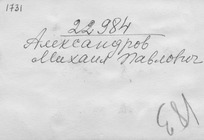 1731
22984
Александров
Михаил Павлович